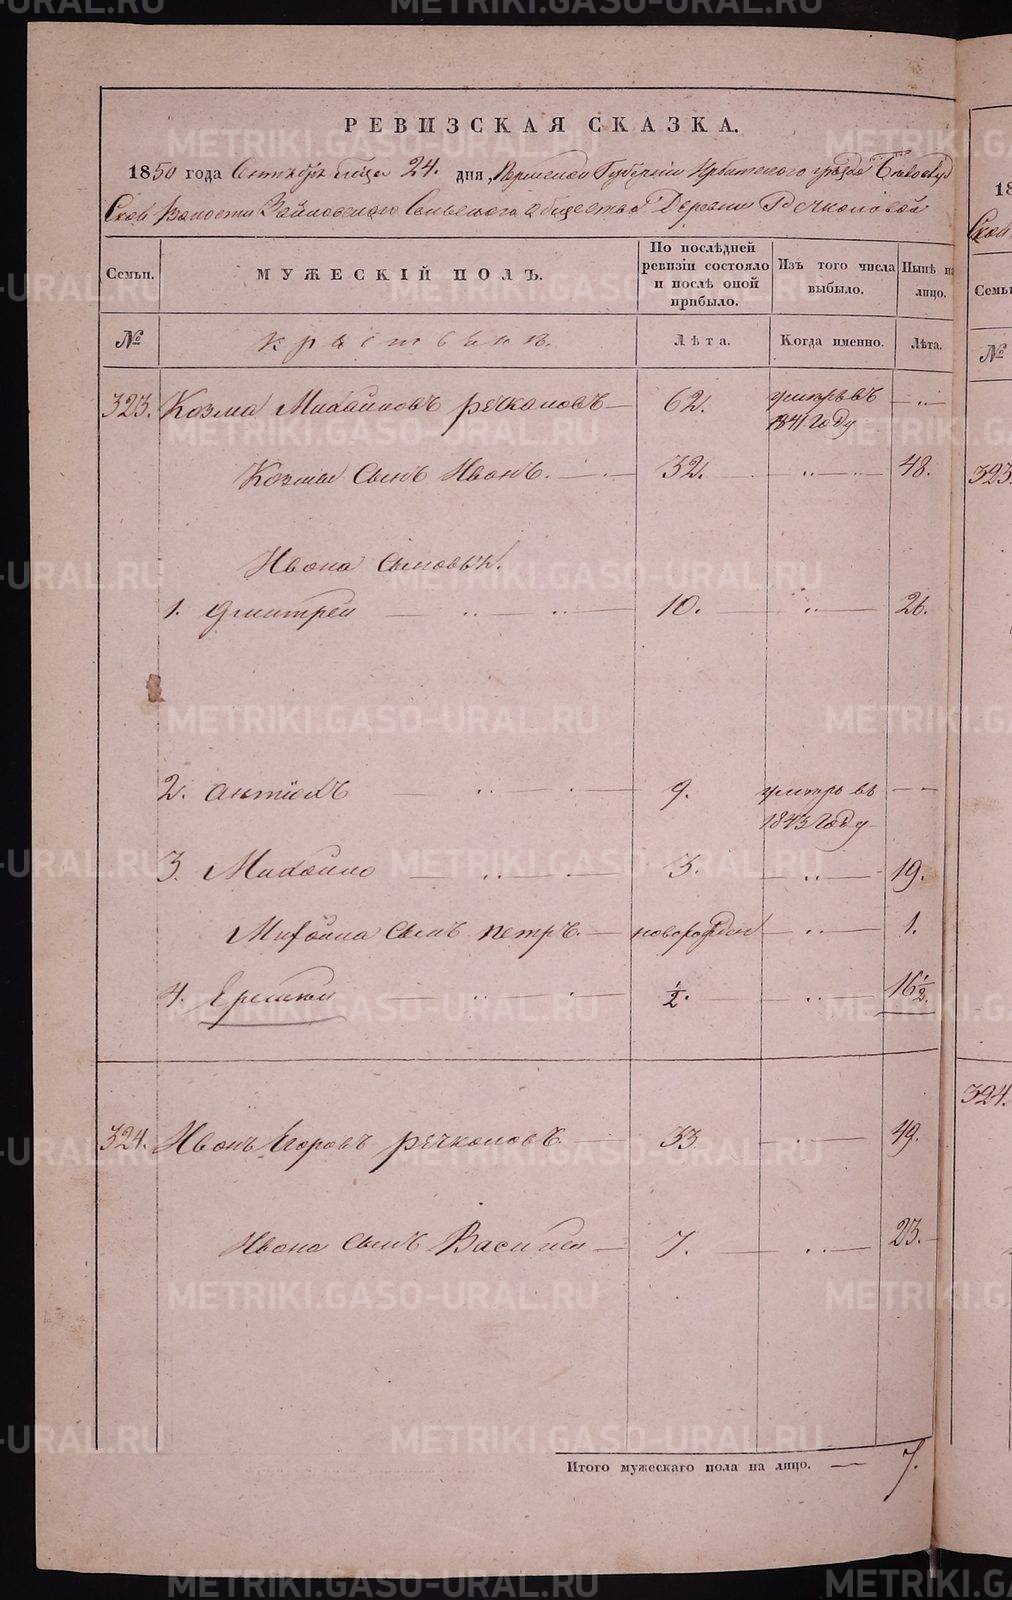 РЕВИЗСКАЯ СКАЗКА.
1850 года Сентября месяца 24. дня, Пермской Губернии Ирбитского уѣзда Бѣлослуд
Ской Волости Зайковского Сельского общества Деревни Речкаловой
Семьи. МУЖЕСКІЙ ПОЛЪ. По послѣдней ревизіи состояло и послѣ оной прибыло. Изъ того числа выбыло. Нынѣ на лицо.
№ крестьянъ. Лѣта. Когда именно. Лѣта.
323. Козма Михайловъ речкаловъ 62. умеръ въ 1841 Году
Козмы Сынъ Иванъ. 32. 48.
Ивана Сыновья.
1. Дмитрей 10. 26.
2. Антипъ 9. умеръ въ 1843 Году
3. Михайло 3. 19.
Михайла Сынъ петръ. новорожден 1.
4. Еремѣй 1/2. 16 1/2.
324. Иванъ Егоровъ речкаловъ 33. 49.
Ивана Сынъ Василей 7. 23.
Итого мужескаго пола на лицо. 7.
18
Ской
Семьи
№
323.
324.
METRIKI.GASO-URAL.RU